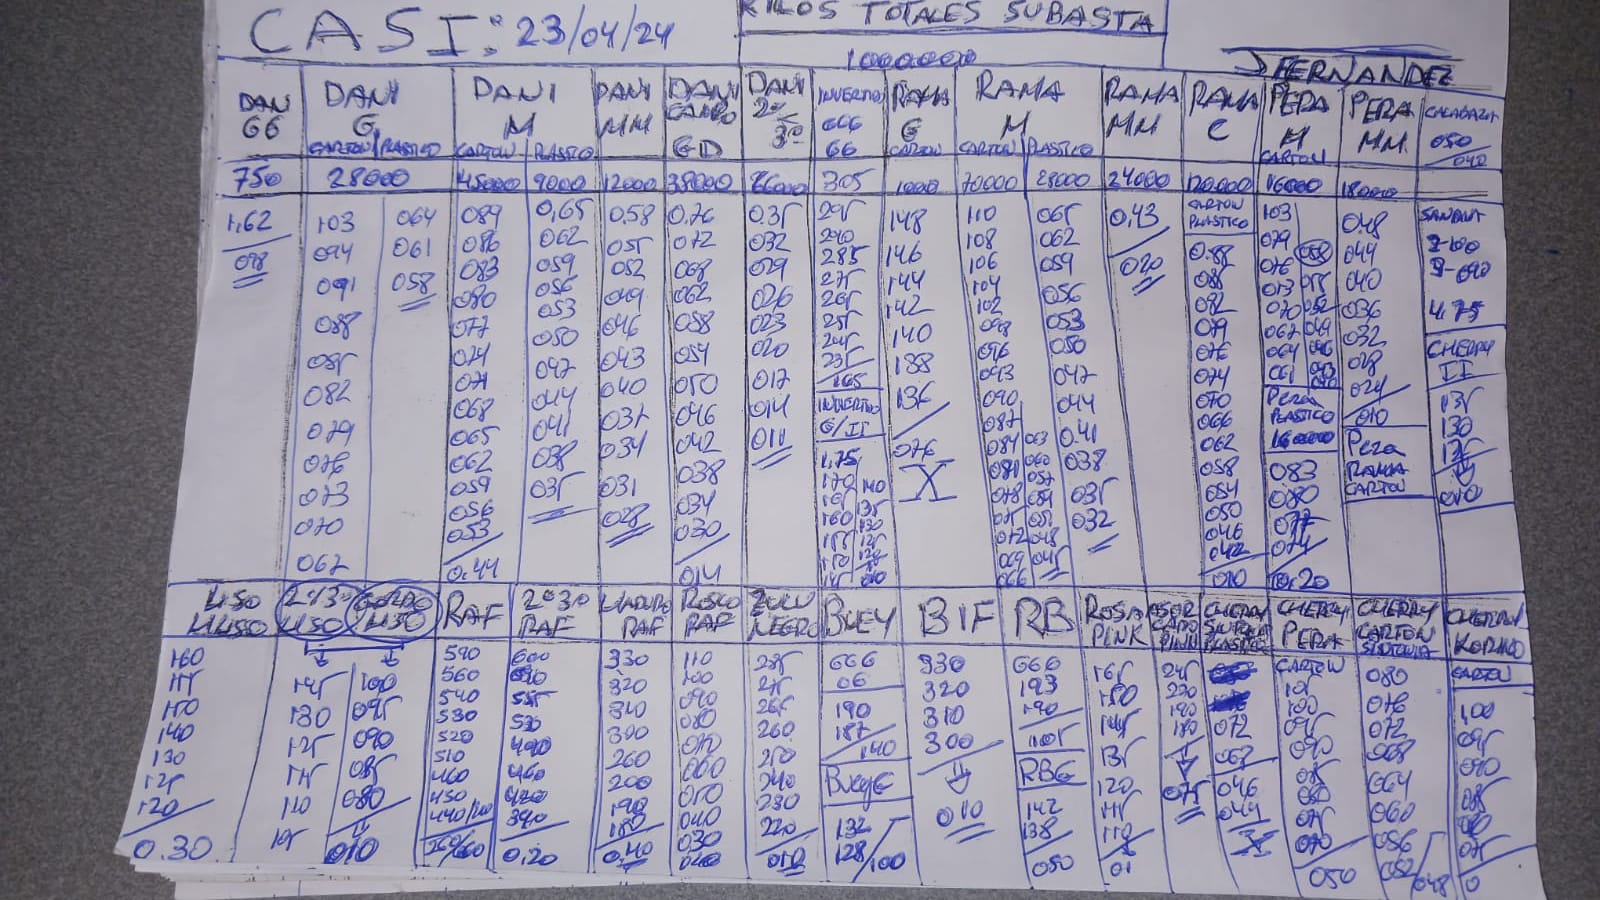 CASI: 23/04/24
KILOS TOTALES SUBASTA
1000000
J FERNANDEZ
DANI GG | DANI G | DANI M | DANI MM | DANI CAMPO GD | DANI 2ª 3ª | INVERNO 666 66 | RAMA G | RAMA M | RAMA MM | RAMA C | PERA M | PERA MM | CALABAZIN 050/040
CARTON | PLASTICO | CARTON | PLASTICO | CARTON | CARTON | PLASTICO | CARTON
750 | 28000 | 45000 | 9000 | 12000 | 38000 | 26000 | 305 | 1000 | 70000 | 28000 | 24000 | 120.000 | 16000 | 18000
1,62
098
103
094
091
088
085
082
079
076
073
070
067
064
061
058
089
086
083
080
077
074
071
068
065
062
059
056
053
0.44
0,65
062
059
056
053
050
047
044
041
038
035
0.58
055
052
049
046
043
040
037
034
031
028
0.76
072
068
062
058
054
050
046
042
038
034
030
014
0.35
032
029
026
023
020
017
014
011
295
290
285
275
265
255
245
235
165
G/II
1.75
170 140
165 135
160 130
155 125
150 120
145 010
148
146
144
142
140
138
136
076
X
110
108
106
104
102
098
096
093
090
087
084 063
081 060
078 057
075 051
072 048
069 045
066
065
062
059
056
053
050
047
044
0.41
038
035
032
0,43
020
CARTON
PLASTICO
0.88
085
082
079
076
074
070
066
062
058
054
050
046
042
010
103
079 058
076 055
073 052
070 049
067 046
064 043
061
Pera
PLASTICO
16000
083
080
077
074
0.20
0.48
044
040
036
032
028
024
010
Pera
RAMA
CARTON
SANDIA
2-100
3-090
4.75
CHERRY
II
135
130
125
010
LISO | 2ª 3ª LISO | GORDO LISO | RAF | 2ª 3ª RAF | MADURO RAF | ROSCO RAF | ZULU NEGRO | BUEY | BIF | RB | ROSA PINK | ASURCADO PINK | CHERRY SINTONIA PLASTICO | CHERRY PERA | CHERRY CARTON SINTONIA | CHERRY KORINO
160
155
150
140
130
125
120
0.30
145
130
125
115
110
105
100
095
090
085
080
010
590
560
540
530
520
510
460
450
600
590
555
530
490
460
420
390
0,20
330
320
310
300
260
200
190
180
0,40
110
100
090
080
070
060
050
040
030
020
285
275
265
260
250
240
230
220
010
666
06
190
187
140
BueyG
132
128/100
330
320
310
300
010
666
193
190
105
RBG
142
138
050
165
150
145
135
120
115
110
01
245
220
190
180
075
072
067
046
044
CARTON
105
100
095
090
085
080
075
070
050
080
076
072
068
064
060
056
052/048
CARTON
1,00
095
090
085
080
075
0